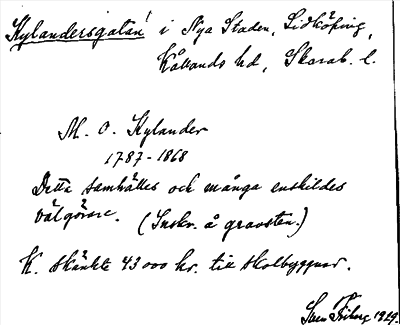 Kylandersgatan i Nya Staden, Lidköping,
Kållands hd, Skarab. l.
M. O. Kylander
1787-1868
Detta samhälles och många enskildes
välgörare. (Inskr. å gravsten.)
K. skänkte 43000 kr. till skolbyggnad.
Sven Friberg 1929.